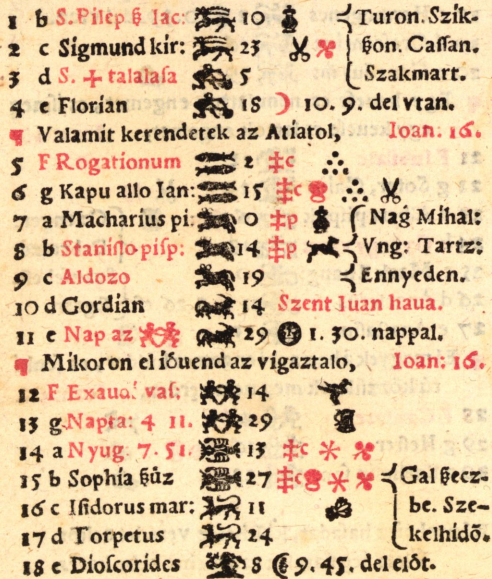 1 b S. Pilep ß Iac: 10 Turon. Szik-
2 c Sigmund kir: 23 ßon. Caſſan.
3 d S. ✝ talalaſa 5 Szakmart.
4 e Florián 18 ☽ 10. 9. del vtan.
¶ Valamit kerendetek az Atiatol, Ioan: 16.
5 F Rogationum 2 ‡c
6 g Kapu allo Ián: 15 ‡c
7 a Macharius pi: 0 ‡p Nag Míhal:
8 b Staniſlo piſp: 14 ‡p Vng: Tartz:
9 c Aldozo 19 Ennyeden.
10 d Gordían 14 Szent Iuan haua.
11 e Nap az 29 1. 30. nappal.
¶ Mikoron el iöuend az vígaztalo, Ioan: 16.
12 F Exaud. vaſ: 14
13 g Napta: 4 11. 29
14 a Nyug. 7. 51. 13 ‡c
15 b Sophía ßűz 27 ‡c Gal ßecz-
16 c Iſidorus mar: 11 be. Sze-
17 d Torpetus 24 kelhidő.
18 e Dioſcorides 8 ☾ 9. 45. del elòt.